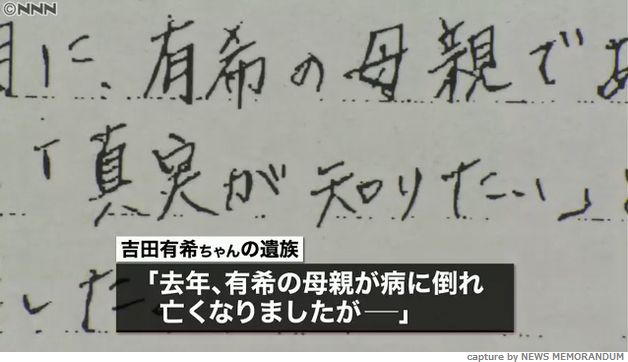 NNN
月に、有希の母親であ
「真実が知りたい」と
した
吉田有希ちゃんの遺族
「去年、有希の母親が病に倒れ
亡くなりましたが──」
capture by NEWS MEMORANDUM